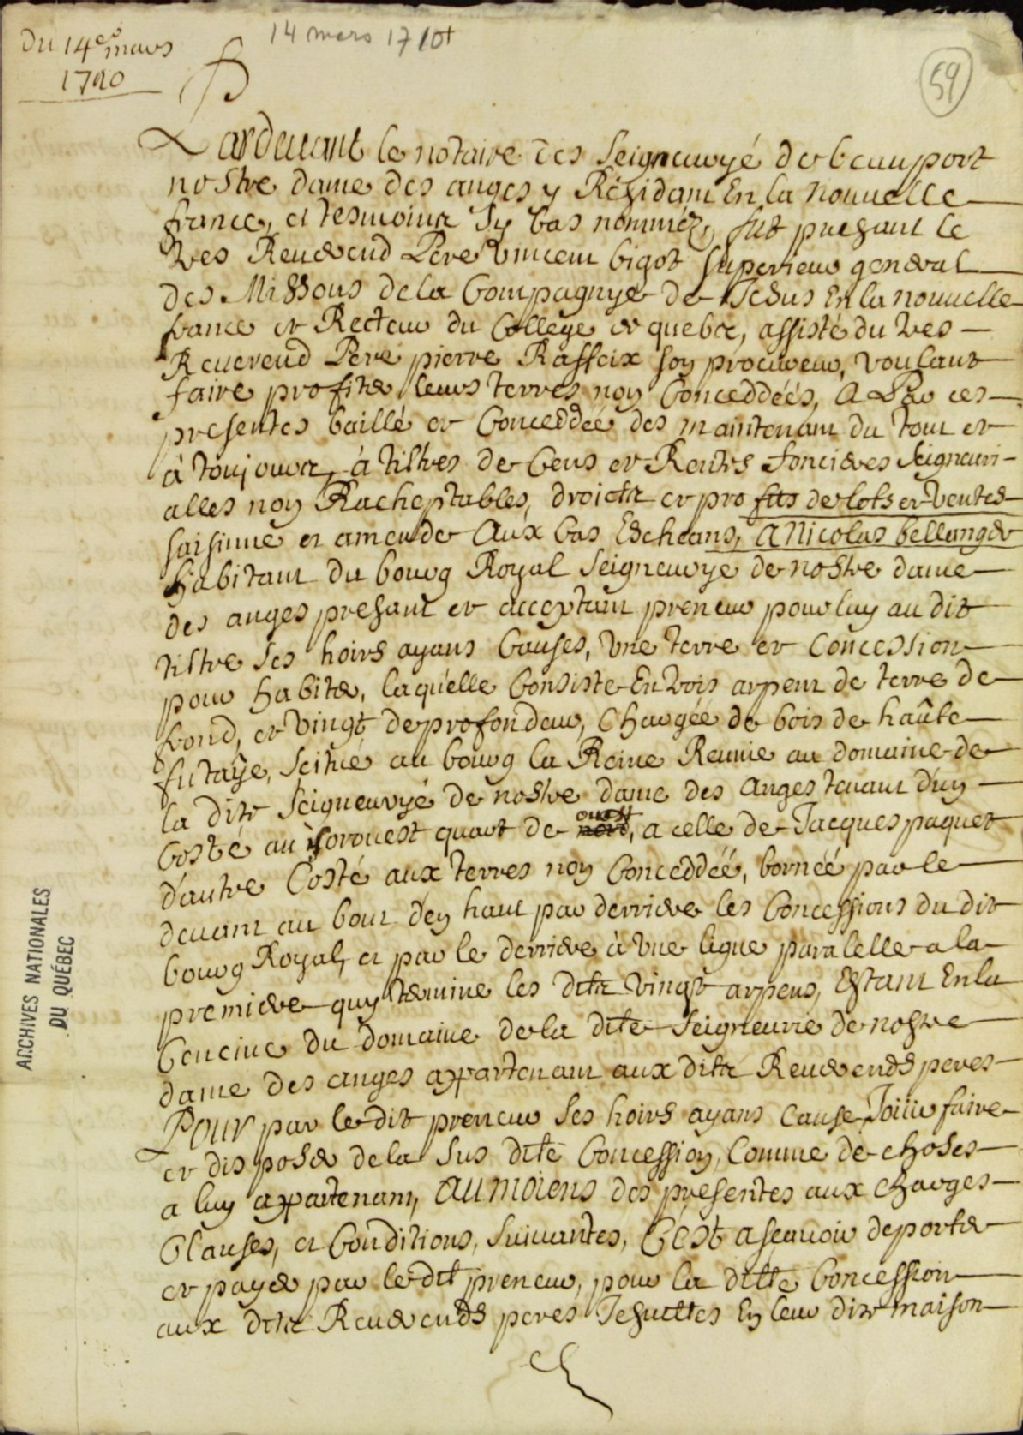 Du 14e mars
1710
14 mars 1710
59
Pardevant le notaire des Seigneuryé de beauport
nostre dame des anges y Résidant En la nouvelle
france, et tesmoins Sy bas nommez, fut presant le
tres Reverend Pere vincent bigot Superieur general
des Missons de la Compagnye de Jesus En la nouvelle
france et Recteur du College de quebec, assisté du tres
Reverend Pere pierre Raffeix son procureur, voulant
faire profiter leurs terres non Conceddéés, a Par ces
presentes baillé et Conceddée des maintenant du tout et
à toujours, à tiltres de Cens et Rentes foncieres Seigneuri-
alles non Racheptables, droicts et profits de lots et ventes
saisinne et amende Aux Cas Escheans, A Nicolas bellanger
habitant du bourg Royal Seigneurye de nostre dame
des anges presant et acceptant preneur pour luy au dit
tiltre ses hoirs ayans Causes, vne terre et Concession
pour habiter, laquelle Consiste En trois arpent de terre de
frond, et vingt de profondeur, Chargéé de bois de haûte
futaye, Scituée au bourg la Reine Reunie au domaine de
la dite Seigneuryé de nostre dame des Anges tenant d'un
Costé au sorouest quart de ouest, a celle de Jacques paquet
d'autre Costé aux terres non Conceddéé, bornéé par le
devant au bout d'en haut par derriere les Concessions du dit
bourg Royal, et par le derriere à vne ligne paralelle a la
premiere quy termine les dits vingt arpens, Estant En la
Censive du domaine de la dite Seigneurie de nostre
dame des anges appartenant aux dits Reverends peres
Pour par le dit preneur ses hoirs ayans Cause Joüir faire
et disposer de la Sus dite Concession, Comme de choses
a luy appartenant, AU MOIENS des presentes aux charges
Clauses, et Conditions, Suivantes, C'est ascavoir de porter
et payer par le dit preneur, pour la ditte Concession
aux dits Reverends peres Jesuittes En leur dite maison
ARCHIVES NATIONALES
DU QUÉBEC